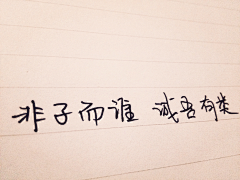 非子而谁 诚吾有类